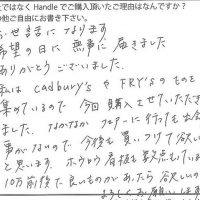 ではなく Handle でご購入頂いたご理由はなんですか？
他ご自由にお書き下さい。
お世話になります
希望の日に 無事に 届きました
ありがとう ございました。
私は cadbury's や FRY's のものを
集めているので 今回 購入させていただき
ました。なかなか 行っても出会
事がないので 今後も 買いつけて 欲しい
と思います。ホウロウ 看板も
10万前後で良いものがあったら 欲しい
よろしくお願いします